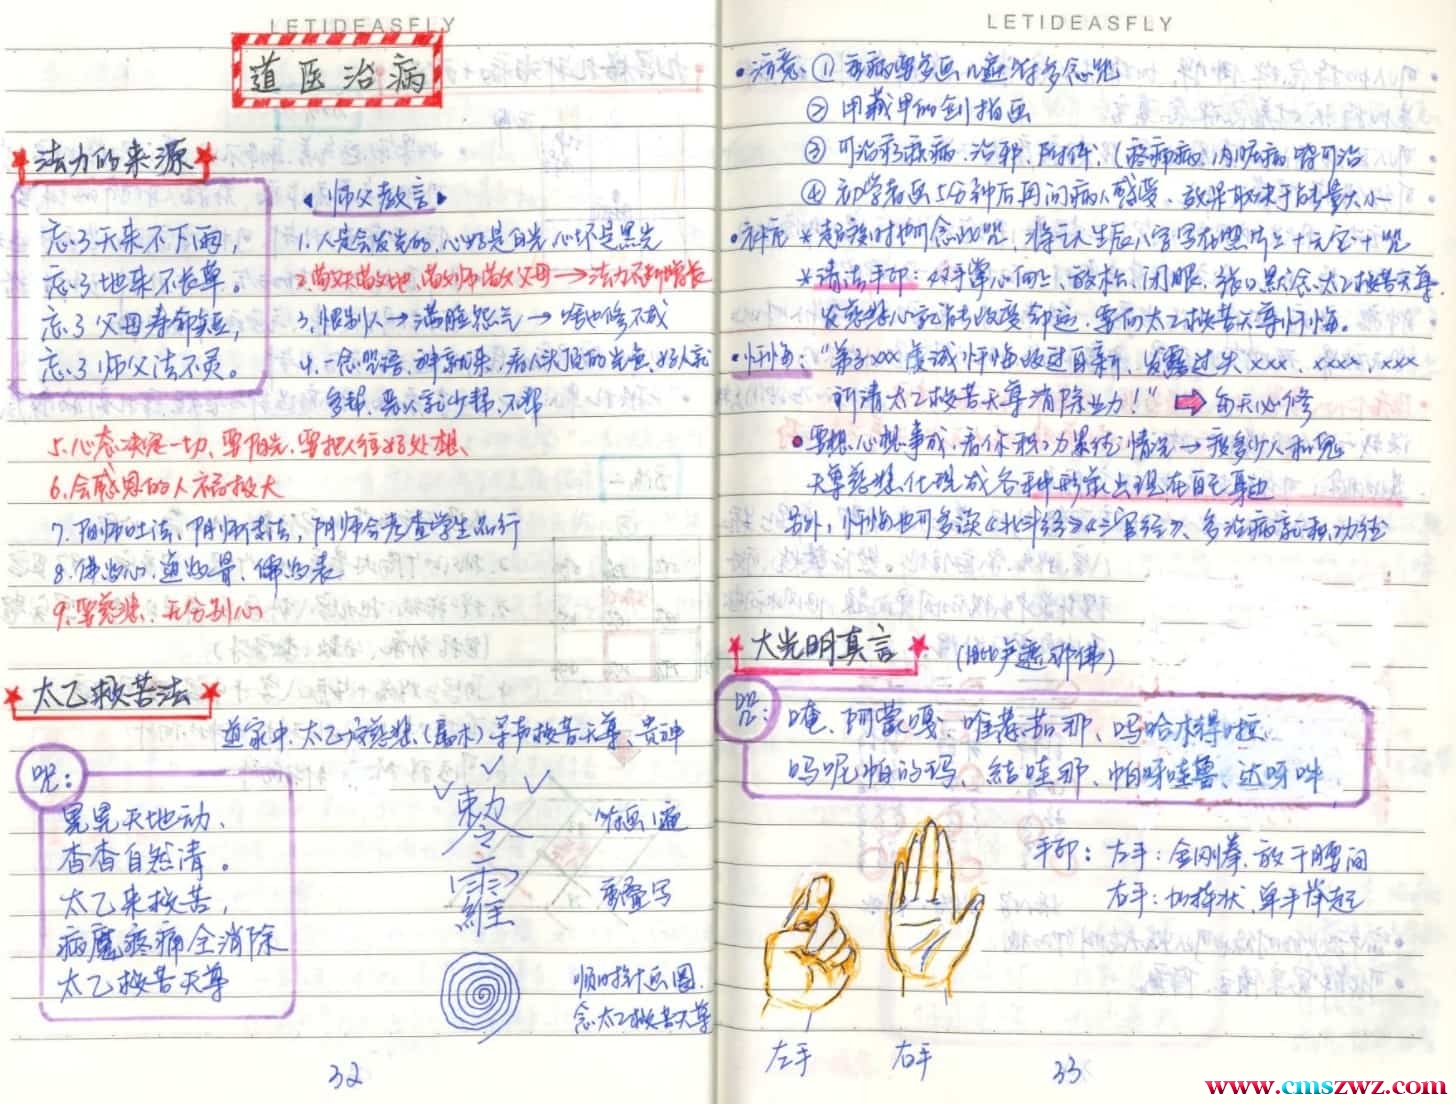 LETIDEASFLY
道医治病
法力的来源
忘了天来不下雨,
忘了地来不长草。
忘了父母寿命短,
忘了师父法不灵。
师父教言
1.人是会发光的,心好是白光,心坏是黑光
2.敬天敬地,敬师敬父母→法力不断增长
3.恨别人→满腔怨气→啥也修不成
4.一念咒语,神就来,看人头顶的光色,好人就
多帮,恶人就少帮、不帮
5.心态决定一切,要阳光,要把人往好处想、
6.会感恩的人福报大
7.阳师吐法,阴师传法,阴师会考查学生品行
8.佛为心,道为骨,儒为表
9.要慈悲,无分别心
太乙救苦法
道家中,太乙最慈悲(属木)寻声救苦天尊,贵神
咒:
晃晃天地动、
杳杳自然清。
太乙来救苦,
病魔疼痛全消除
太乙救苦天尊
敕令
符画1遍
重叠写
顺时针画圈,
念太乙救苦天尊
32
LETIDEASFLY
注意:① 重病要多画几遍符多念咒
② 用藏甲的剑指画
③ 可治疑难病、治邪、附体(疼痛病、内脏病皆可治
④ 初学者画5分钟后再问病人感受、效果取决于能量大小
补充 * 超度时也可念此咒,将亡人生辰八字写在黑片上+元宝+咒
* 请法手印:双手掌心向上,放松,闭眼,张口,默念太乙救苦天尊.
发慈悲心就能改变命运,要向太乙救苦天尊忏悔。
忏悔:"弟子xxx虔诚忏悔改过自新、发露过失xxx、xxxx、xxxx
祈请太乙救苦天尊消除业力!" → 每天必修
要想心想事成,看你积功累德情况→救多少人和鬼
天尊慈悲,化现成各种形象出现在自己身边
另外,忏悔也可多读《北斗经》《三官经》、多治病就积功德
大光明真言
(毗卢遮那佛)
咒:
唵、阿蒙嘎、唯荐茄那、吗哈木得啦、
吗呢帕的玛、結哇那、帕呀哇鲁、达呀吽
手印:左手:金刚拳,放于腰间
右手:如掌状,单手掌起
左手
右手
33
www.cmszwz.com